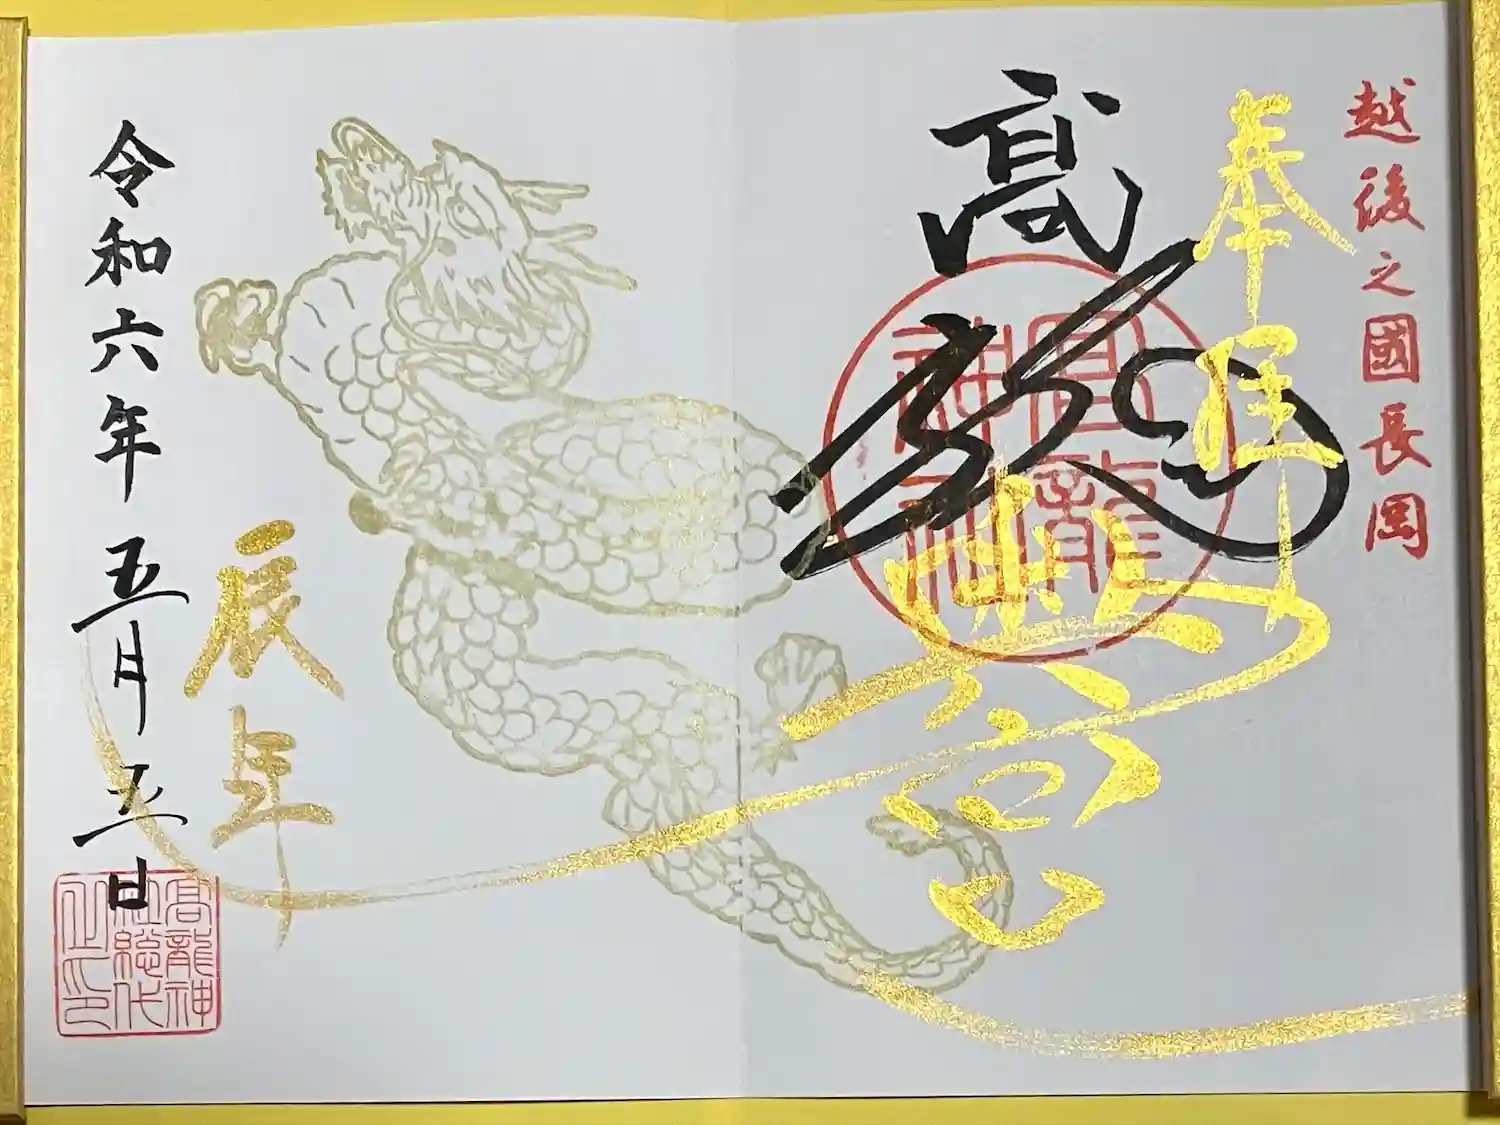 越後之國長岡
奉拝
髙龍
高龍
神社
辰年
令和六年五月五日
高龍神
社総代
之印